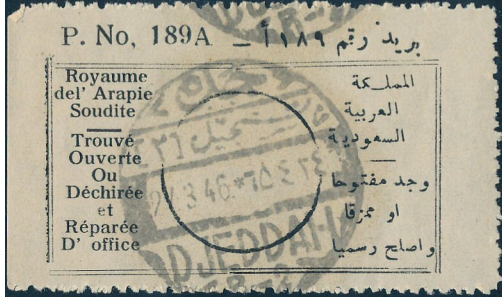 P. No, 189A – بريد رقم ١٨٩أ
Royaume
del' Arapie
Soudite
Trouvé
Ouverte
Ou
Déchirée
et
Réparée
D' office
المملكة
العربية
السعودية
وجد مفتوحا
او ممزقا
واصلح رسميا
3 46
DJEDDAH